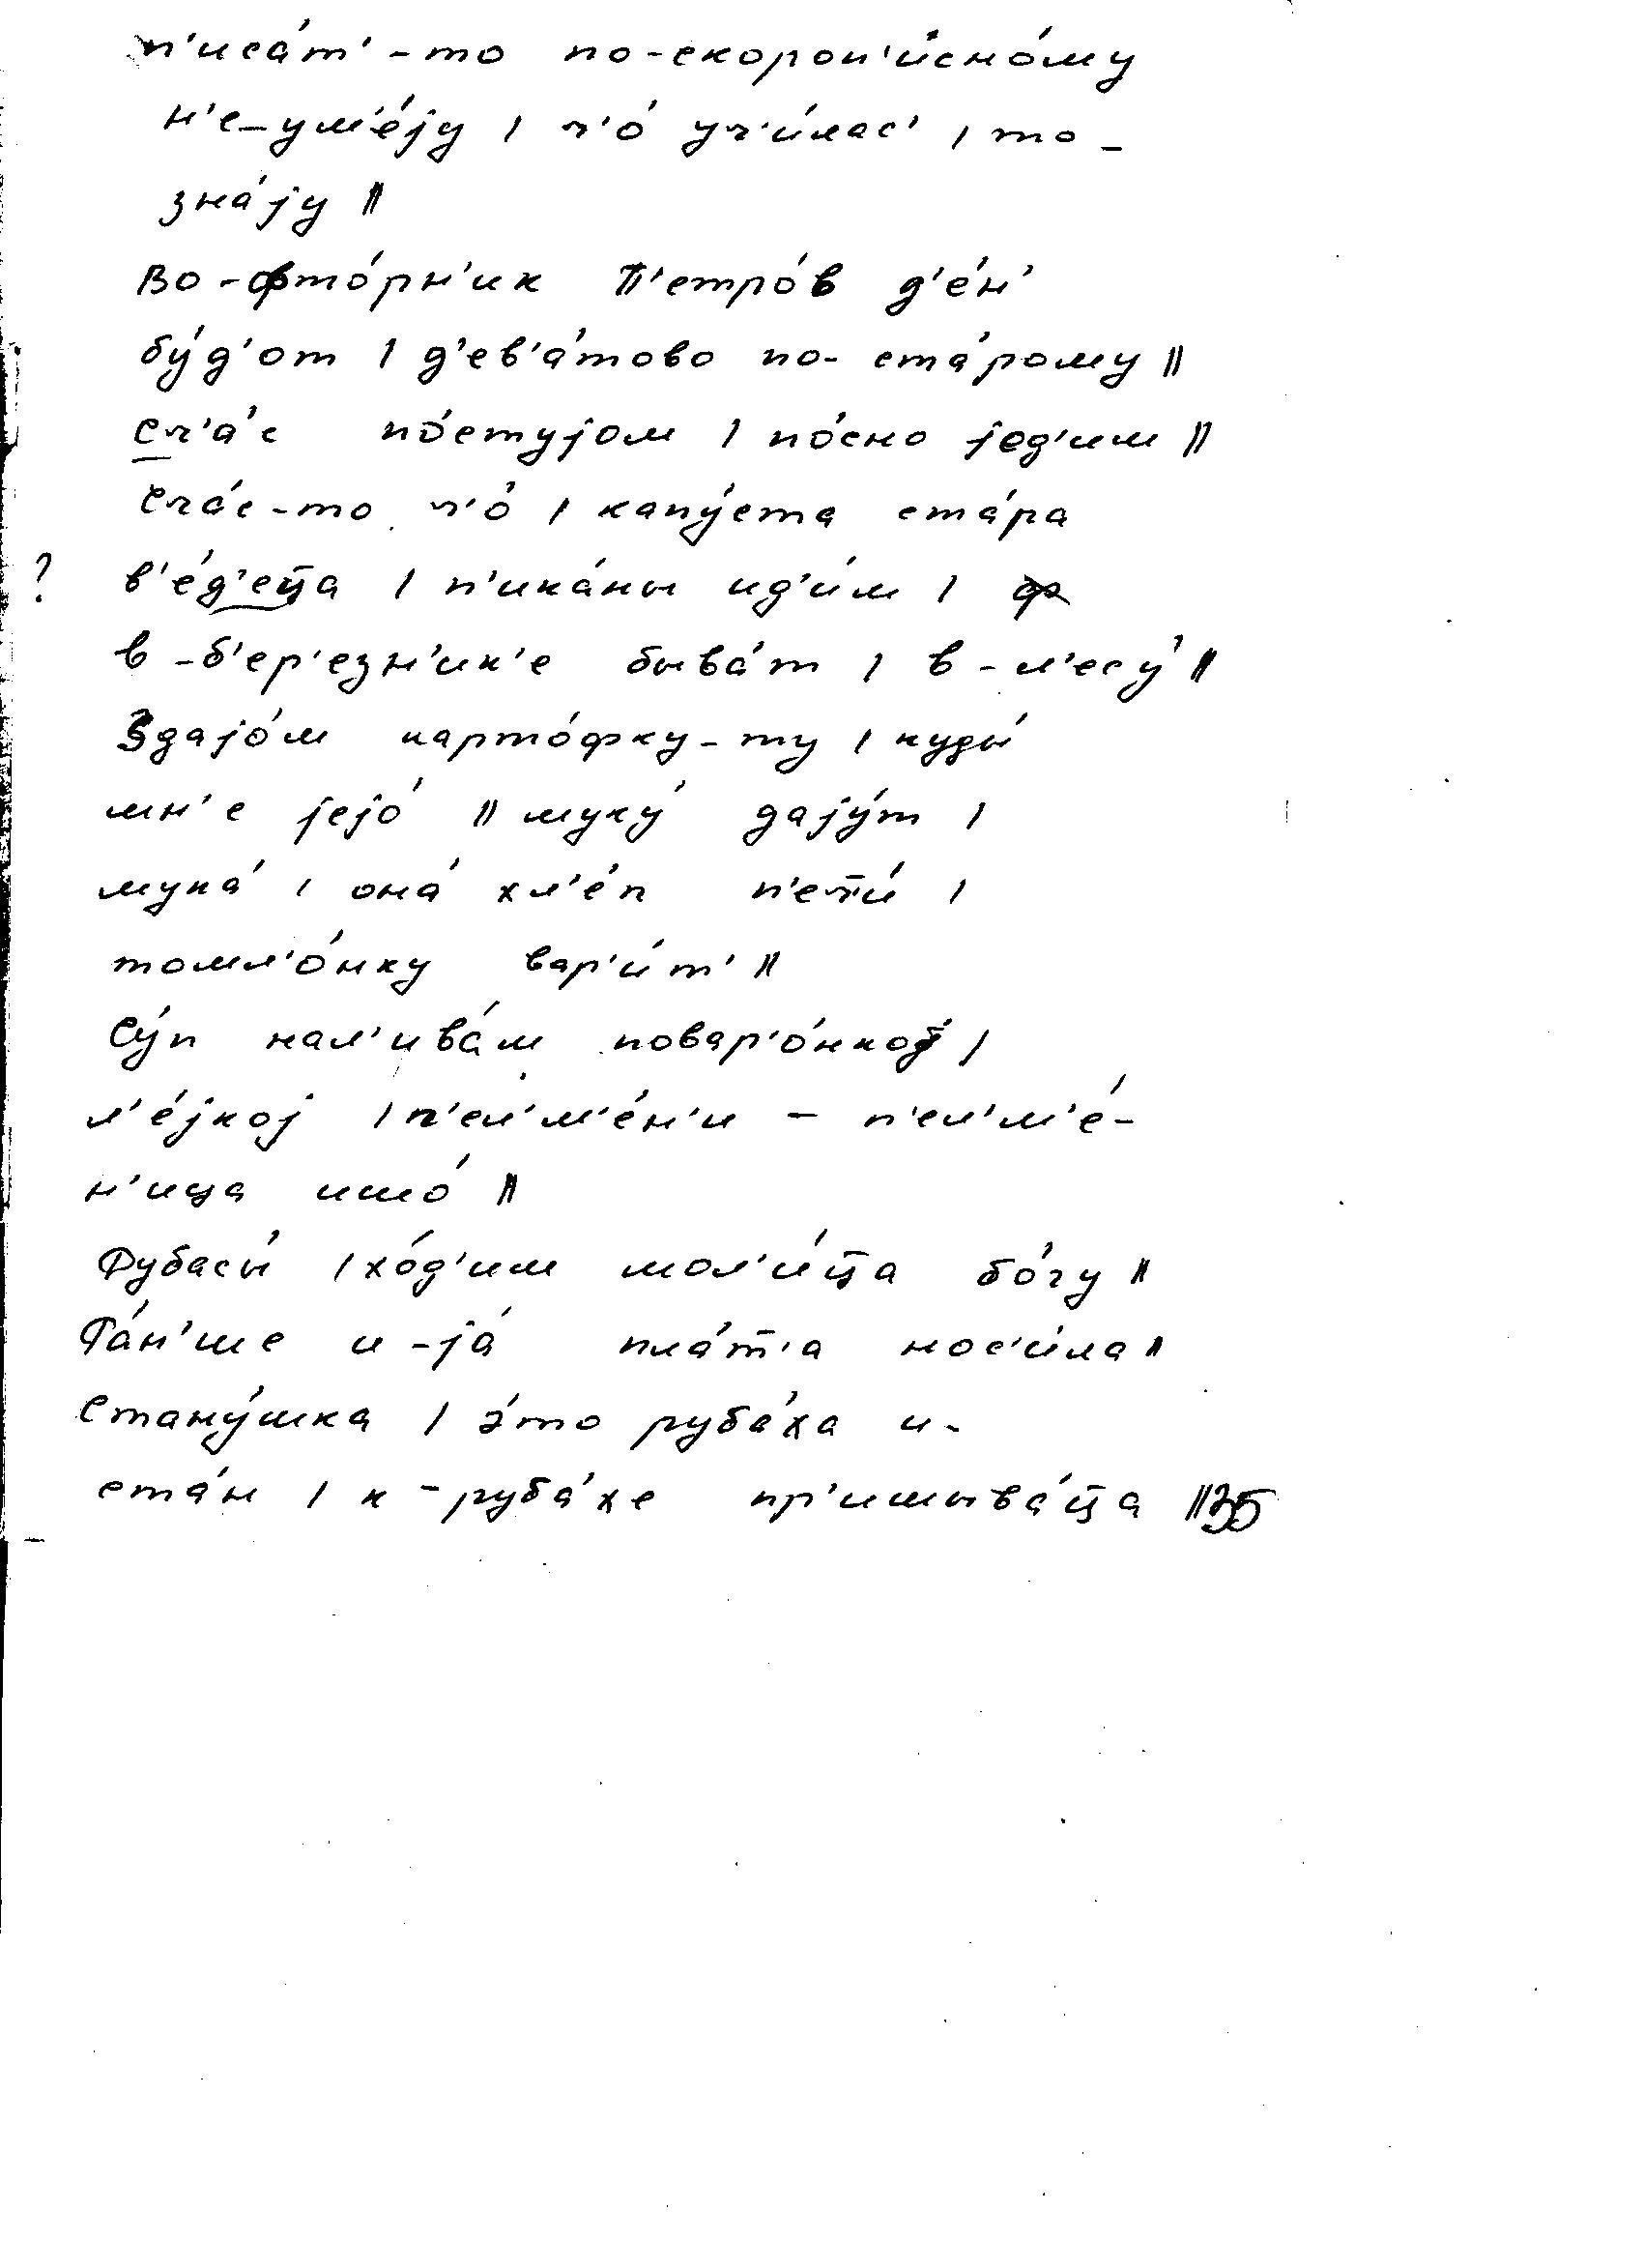 п'иса́т'-то по-скороп'и́сно́му
н'е-ум'е́jу / ч'о́ уч'и́лас' / то-
зна́jу //
Во-фто́рн'ик П'етро́в д'е́н'
бу́д'от / д'ев'а́тово по-ста́рому //
Сч'а́с по́стуjом / по́сно jед'им //
Сча́с-то ч'о́ / капу́ста ста́ра
? в'е́д'еца / п'ика́ны ид'и́м /
в-б'ер'езн'ик'е быва́т / в-л'есу́ //
Здаjо́м карто́фку-ту / куды́
мн'е jеjо́ // муку́ даjу́т /
мука́ / она́ хл'е́п п'еч'и́ /
томл'о́нку вар'и́т' //
Су́п нал'ива́м повар'о́нкоj /
л'е́jкоj / п'ел'м'е́н'и - п'ел'м'е́-
н'ица ишо́ //
Дубасы́ / хо́д'им мол'и́ца бо́гу //
Ра́н'ше и-jа́ пла́т'а нос'и́ла //
Стану́шка / э́то руба́ха и-
ста́н / к-руба́хе пр'ишыва́ца // 35